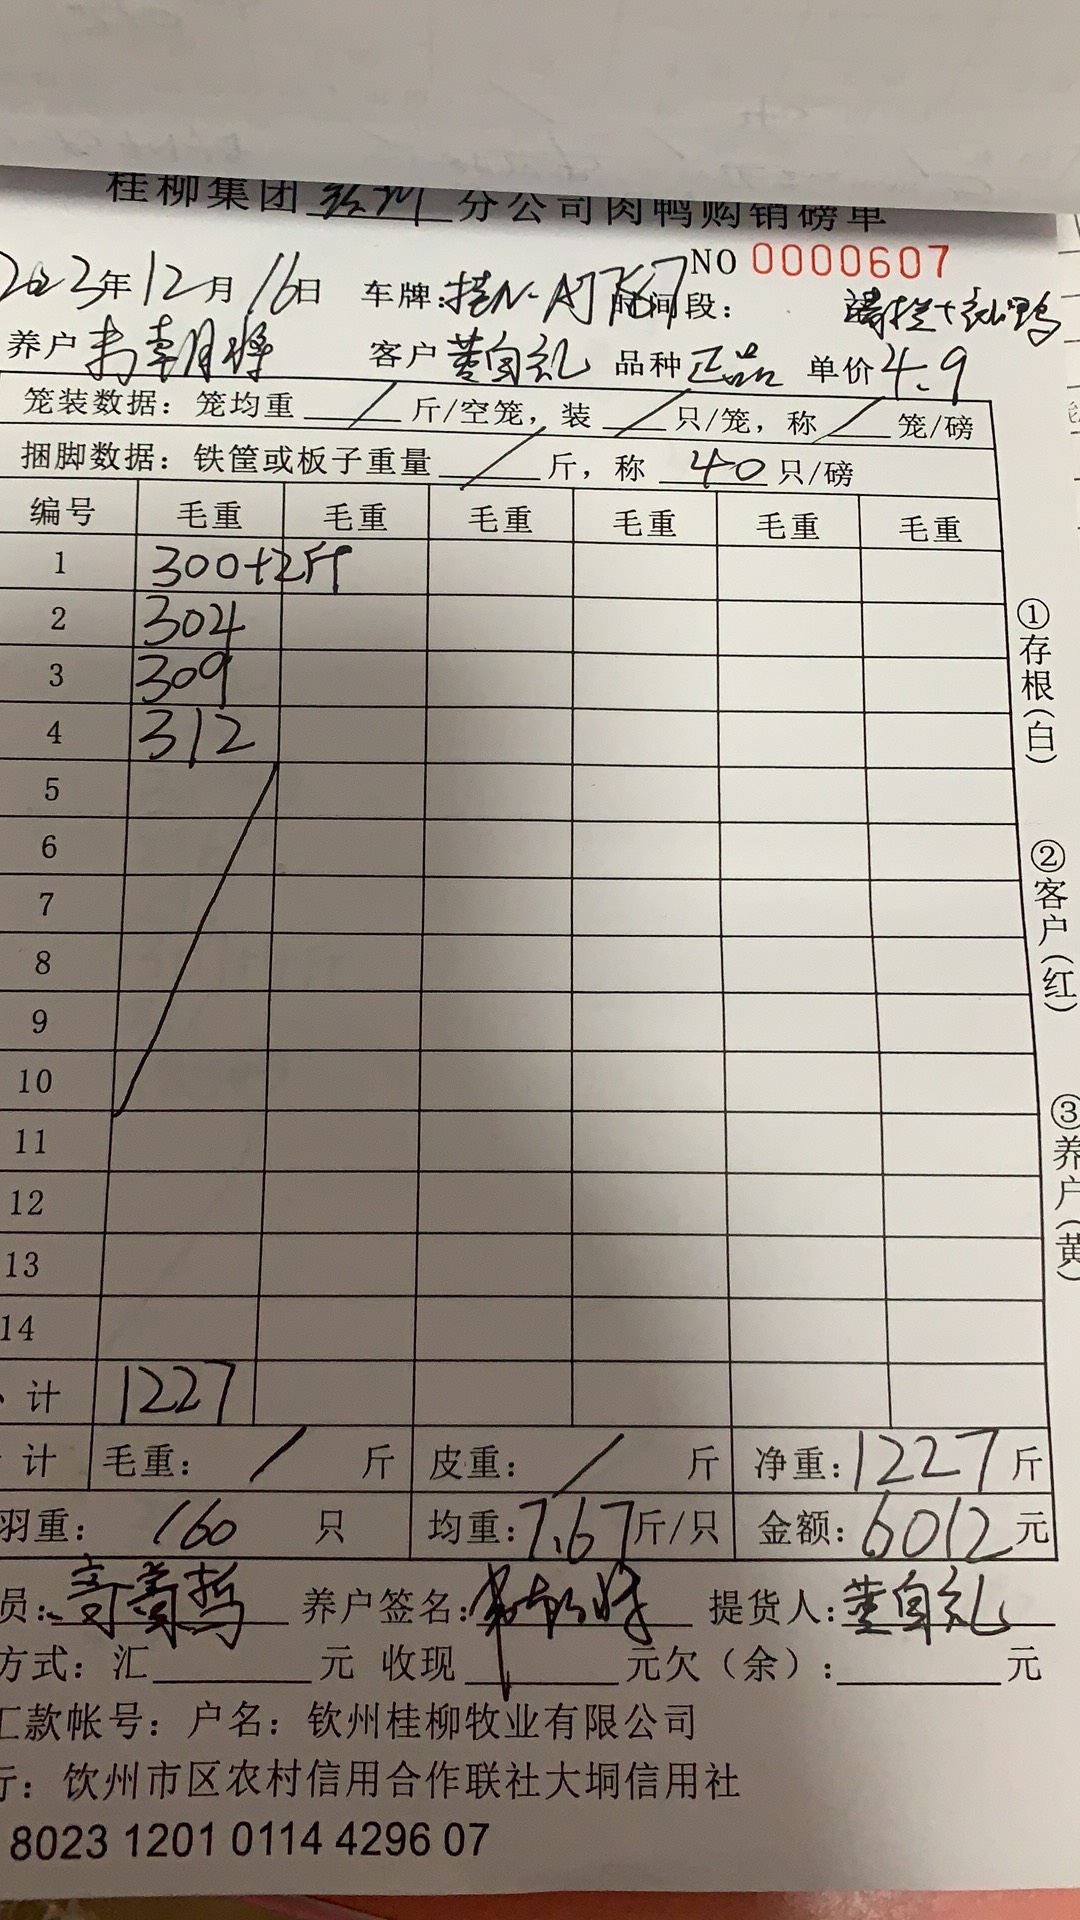 桂柳集团 钦州 分公司肉鸭购销磅单
NO 0000607
2023年12月16日 车牌:桂N· 时间段:
养户 客户 黄自礼 品种 正品 单价 4.9
笼装数据: 笼均重 / 斤/空笼, 装 / 只/笼, 称 / 笼/磅
捆脚数据: 铁筐或板子重量 / 斤, 称 40 只/磅
编号 毛重 毛重 毛重 毛重 毛重 毛重
1 300+2斤
2 304
3 309
4 312
5
6
7
8
9
10
11
12
13
14
计 1227
计 毛重: / 斤 皮重: / 斤 净重: 1227 斤
羽重: 160 只 均重: 7.67 斤/只 金额: 6012 元
员: 养户签名: 提货人: 黄自礼
方式: 汇 元 收现 元欠（余）: 元
汇款帐号: 户名: 钦州桂柳牧业有限公司
行: 钦州市区农村信用合作联社大垌信用社
8023 1201 0114 4296 07
①存根(白)
②客户(红)
③养户(黄)